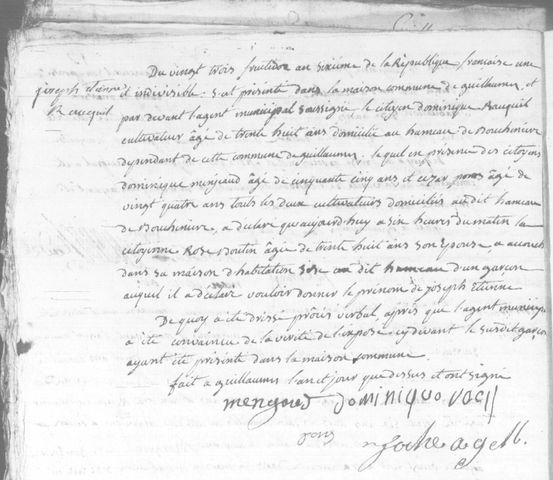 Du vingt trois fructidor an sixieme de la République francaise une
joseph etienne
et indivisible s'est presenté dans la maison commune de guillaumes et
par devant l'agent municipal soussigné le citoyen dominique Rauquil
cultivateur âgé de trente huit ans domicilié au hameau de Bouchenire
dependant de cette commune de guillaumes lequel en presence des citoyens
dominique mengeaud âgé de cinquante cinq ans et cezar pons âgé de
vingt quatre ans touts les deux cultivateurs domiciliés au dit hameau
de Bouchenire, a déclaré qu'aujourd'huy a six heures du matin la
citoyenne Rose Boutin âgée de trente huit ans son Epouse, a accouch
dans sa maison d'habitation au dit hameau d'un garcon
auquel il a déclaré vouloir donner le prénom de joseph Etienne
De quoy a été dressé procis verbal, après que l'agent municipal
a été convaincu de la verité de l'exposé cy devant le susdit garçon
ayant été présenté dans la maison commune.
fait a guillaumes l'an et jour que dessus et ont signé
mengeaud dominiquo
pons
agent